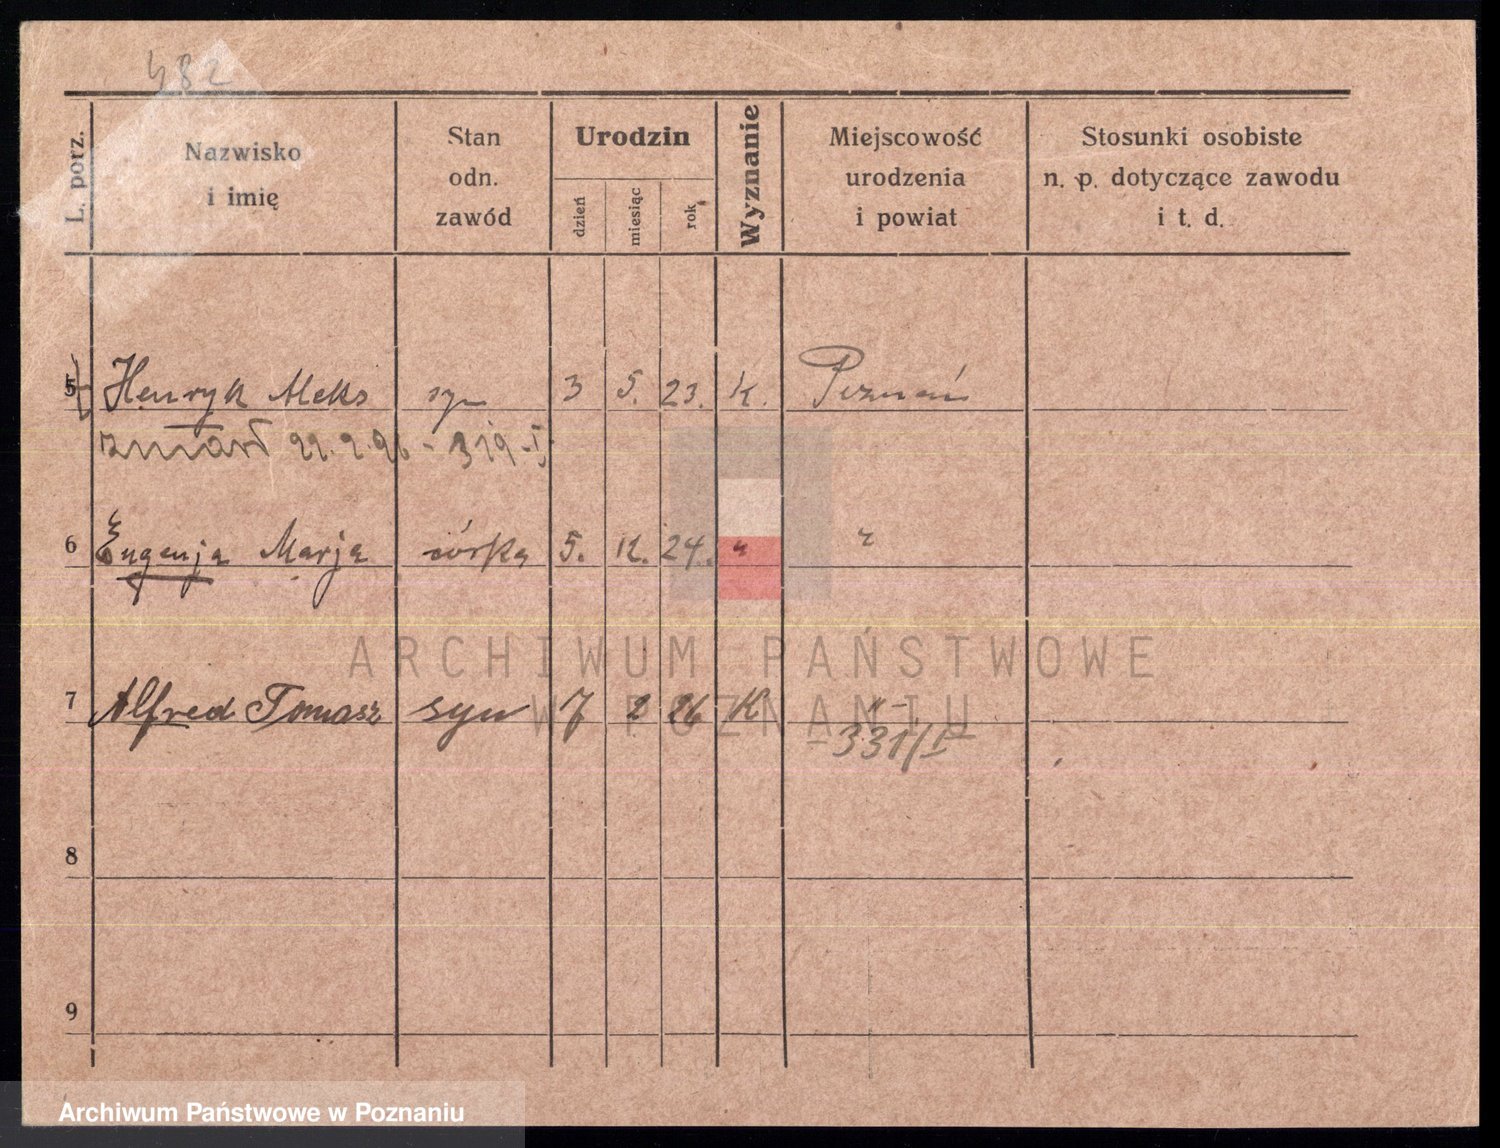 482
L. porz.
Nazwisko i imię
Stan odn. zawód
Urodzin
dzień
miesiąc
rok
Wyznanie
Miejscowość urodzenia i powiat
Stosunki osobiste n. p. dotyczące zawodu i t. d.
5 Henryk Aleks syn 3 5. 23. K. Poznań
zmarł 22.2.26 - 319-I
6 Eugenja Marja córka 5. 12. 24. " "
ARCHIWUM PAŃSTWOWE
W POZNANIU
7 Alfred Tomasz syn 7 2 26 K "-
-331/I-
8
9
Archiwum Państwowe w Poznaniu